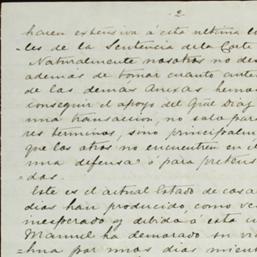 - 2 -
haren extensiva á esta ultima la
les de la Sentencia de la Corte
Naturalmente nosotros no des
además de tomar cuanto antes
de las demas Anexas hemos
conseguir el apoyo del Gral Diaz
una transacion, no solo para
res terminos, sino principalmen
que los otros no encuentren en el
una defensa ó para pretens
das.
Este es el actual Estado de cosas
dias han producido, como ve
inesperado y debido á esta c
Manuel ha demorado su via
bana por mas dias mient